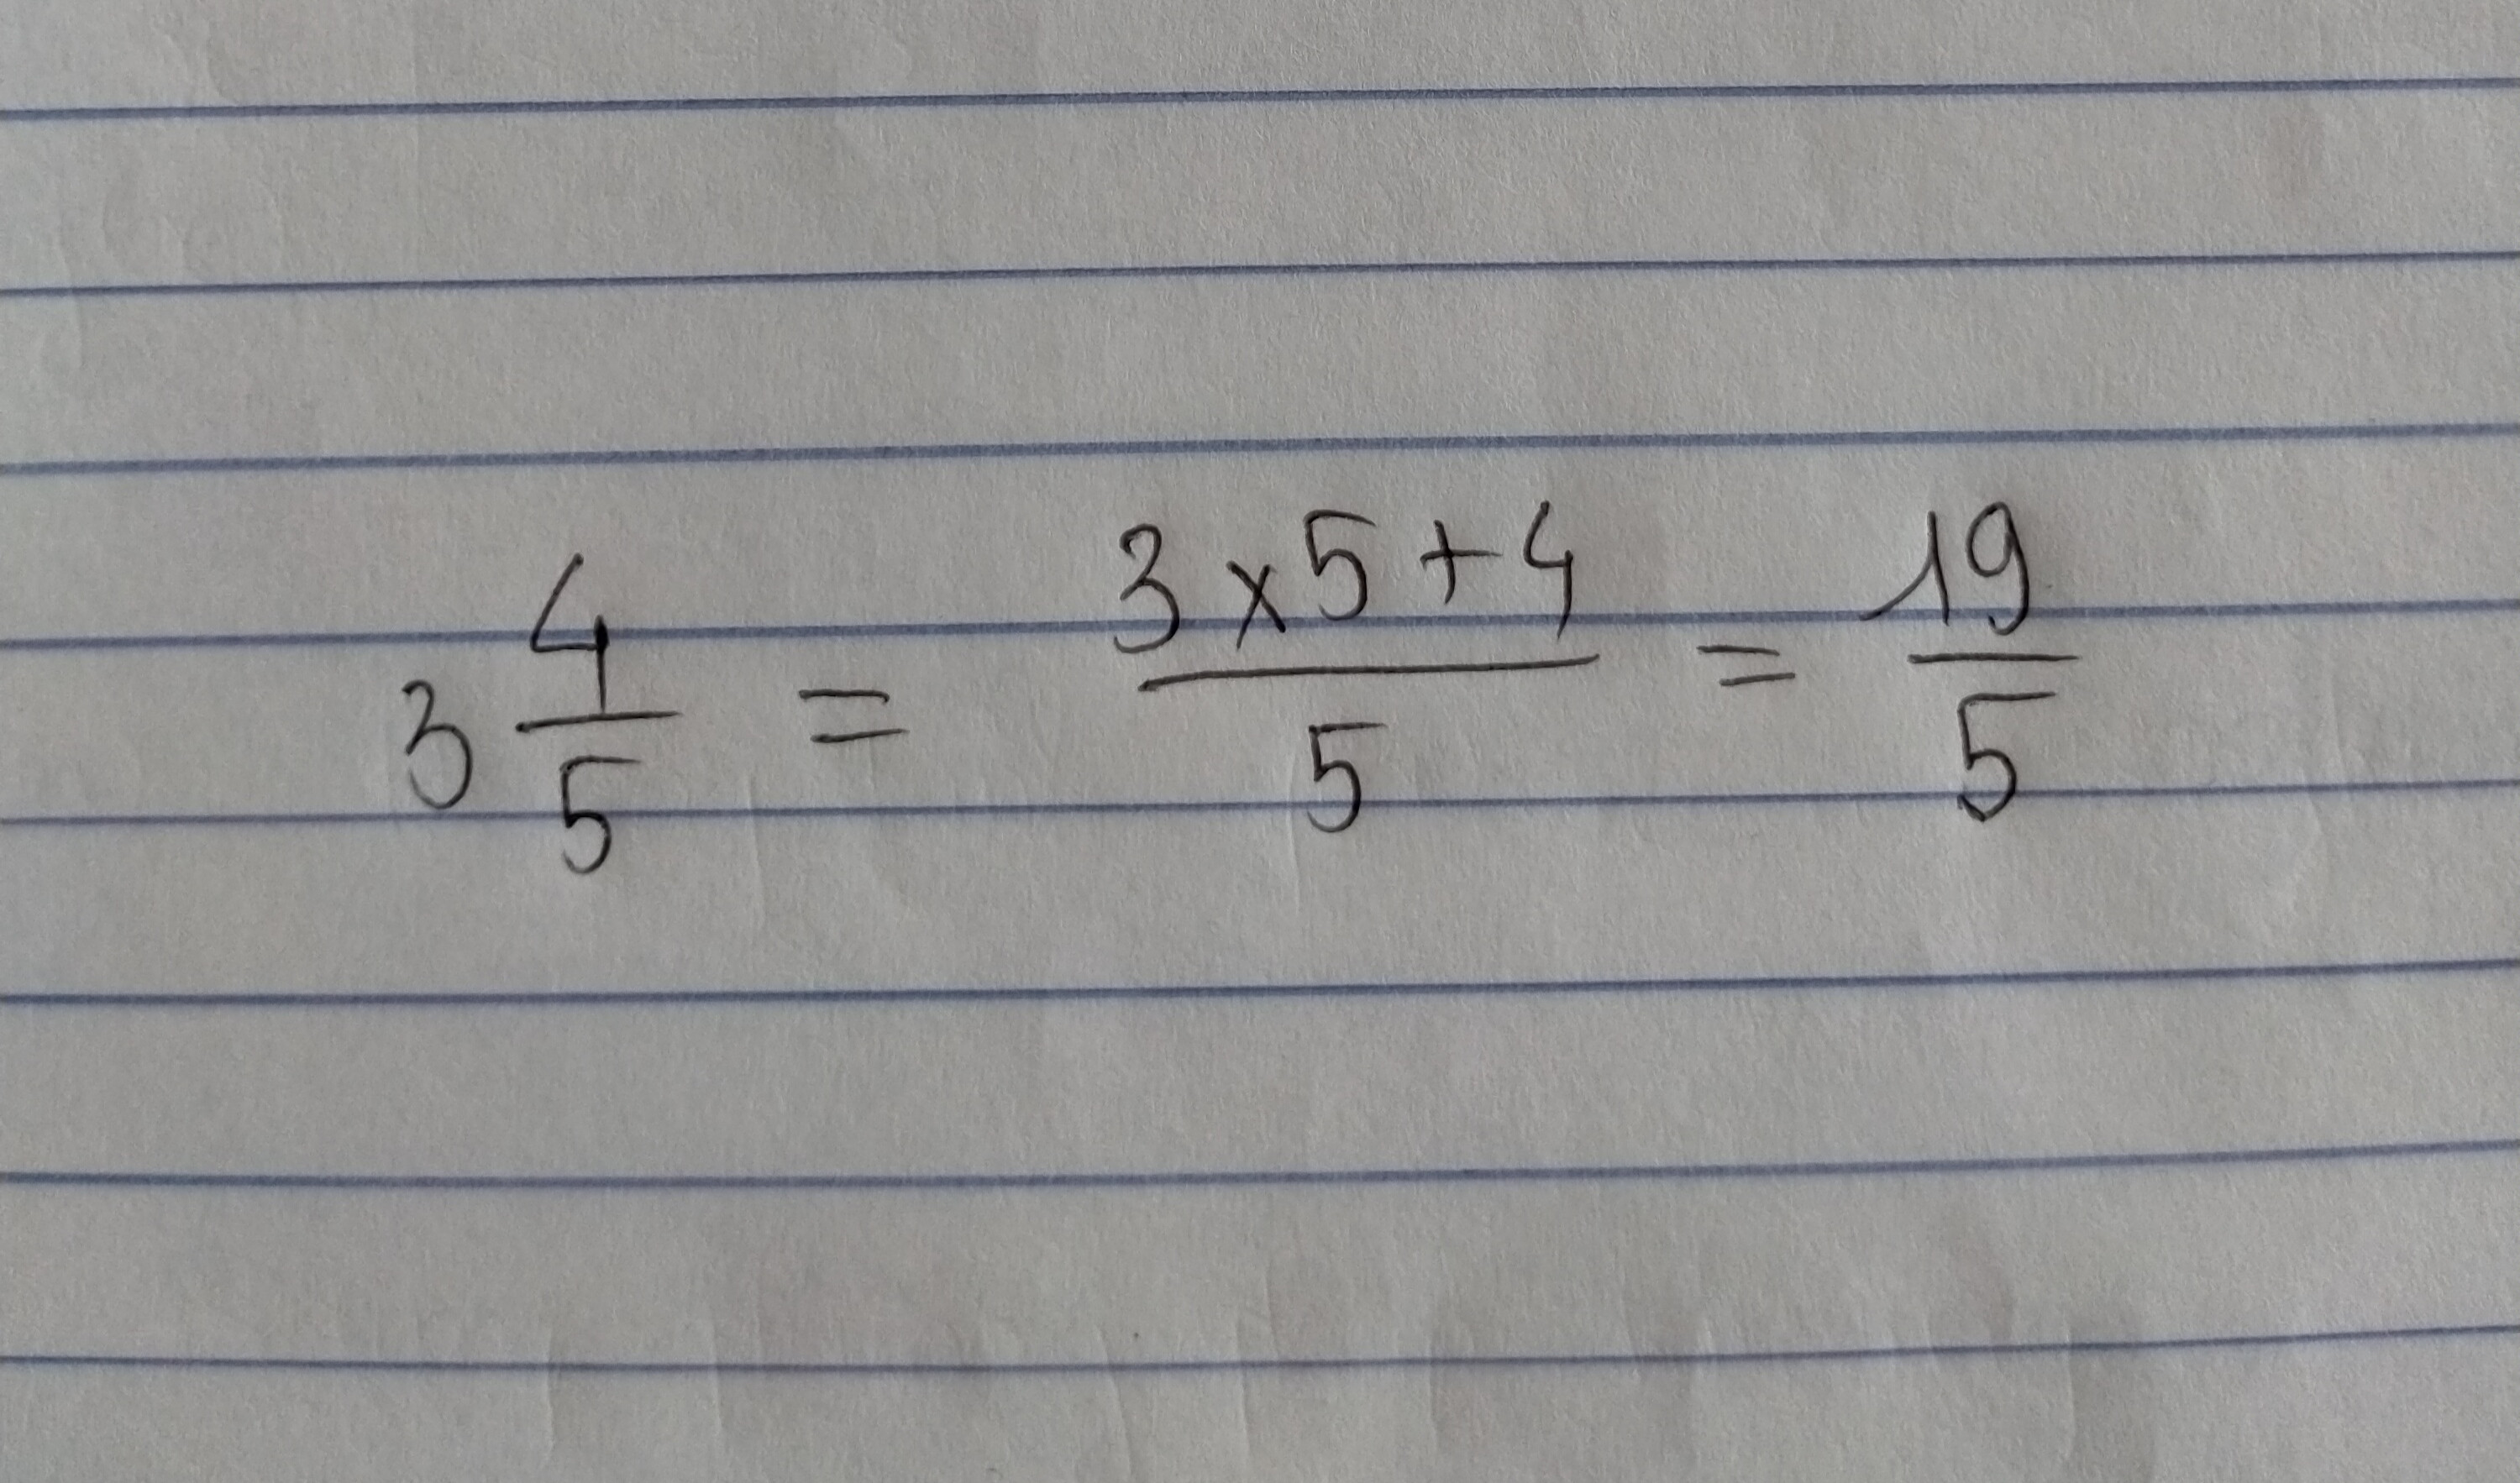 3 4/5 = (3 x 5 + 4)/5 = 19/5